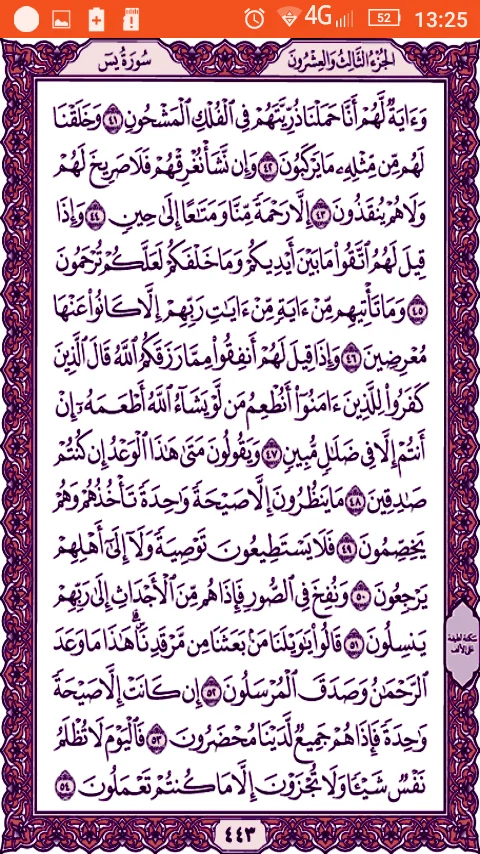 4G 52 13:25
سُورَةُ يسٓ
الجُزْءُ الثَّالِثُ وَالعِشْرُونَ
وَءَايَةٞ لَّهُمۡ أَنَّا حَمَلۡنَا ذُرِّيَّتَهُمۡ فِي ٱلۡفُلۡكِ ٱلۡمَشۡحُونِ ٤١ وَخَلَقۡنَا
لَهُم مِّن مِّثۡلِهِۦ مَا يَرۡكَبُونَ ٤٢ وَإِن نَّشَأۡ نُغۡرِقۡهُمۡ فَلَا صَرِيخَ لَهُمۡ
وَلَا هُمۡ يُنقَذُونَ ٤٣ إِلَّا رَحۡمَةٗ مِّنَّا وَمَتَٰعًا إِلَىٰ حِينٖ ٤٤ وَإِذَا
قِيلَ لَهُمُ ٱتَّقُواْ مَا بَيۡنَ أَيۡدِيكُمۡ وَمَا خَلۡفَكُمۡ لَعَلَّكُمۡ تُرۡحَمُونَ
٤٥ وَمَا تَأۡتِيهِم مِّنۡ ءَايَةٖ مِّنۡ ءَايَٰتِ رَبِّهِمۡ إِلَّا كَانُواْ عَنۡهَا
مُعۡرِضِينَ ٤٦ وَإِذَا قِيلَ لَهُمۡ أَنفِقُواْ مِمَّا رَزَقَكُمُ ٱللَّهُ قَالَ ٱلَّذِينَ
كَفَرُواْ لِلَّذِينَ ءَامَنُوٓاْ أَنُطۡعِمُ مَن لَّوۡ يَشَآءُ ٱللَّهُ أَطۡعَمَهُۥٓ إِنۡ
أَنتُمۡ إِلَّا فِي ضَلَٰلٖ مُّبِينٖ ٤٧ وَيَقُولُونَ مَتَىٰ هَٰذَا ٱلۡوَعۡدُ إِن كُنتُمۡ
صَٰدِقِينَ ٤٨ مَا يَنظُرُونَ إِلَّا صَيۡحَةٗ وَٰحِدَةٗ تَأۡخُذُهُمۡ وَهُمۡ
يَخِصِّمُونَ ٤٩ فَلَا يَسۡتَطِيعُونَ تَوۡصِيَةٗ وَلَآ إِلَىٰٓ أَهۡلِهِمۡ
يَرۡجِعُونَ ٥٠ وَنُفِخَ فِي ٱلصُّورِ فَإِذَا هُم مِّنَ ٱلۡأَجۡدَاثِ إِلَىٰ رَبِّهِمۡ
يَنسِلُونَ ٥١ قَالُواْ يَٰوَيۡلَنَا مَنۢ بَعَثَنَا مِن مَّرۡقَدِنَاۜۗ هَٰذَا مَا وَعَدَ
ٱلرَّحۡمَٰنُ وَصَدَقَ ٱلۡمُرۡسَلُونَ ٥٢ إِن كَانَتۡ إِلَّا صَيۡحَةٗ
وَٰحِدَةٗ فَإِذَا هُمۡ جَمِيعٞ لَّدَيۡنَا مُحۡضَرُونَ ٥٣ فَٱلۡيَوۡمَ لَا تُظۡلَمُ
نَفۡسٞ شَيۡـٔٗا وَلَا تُجۡزَوۡنَ إِلَّا مَا كُنتُمۡ تَعۡمَلُونَ ٥٤
سكتة لطيفة
على الألف
٤٤٣